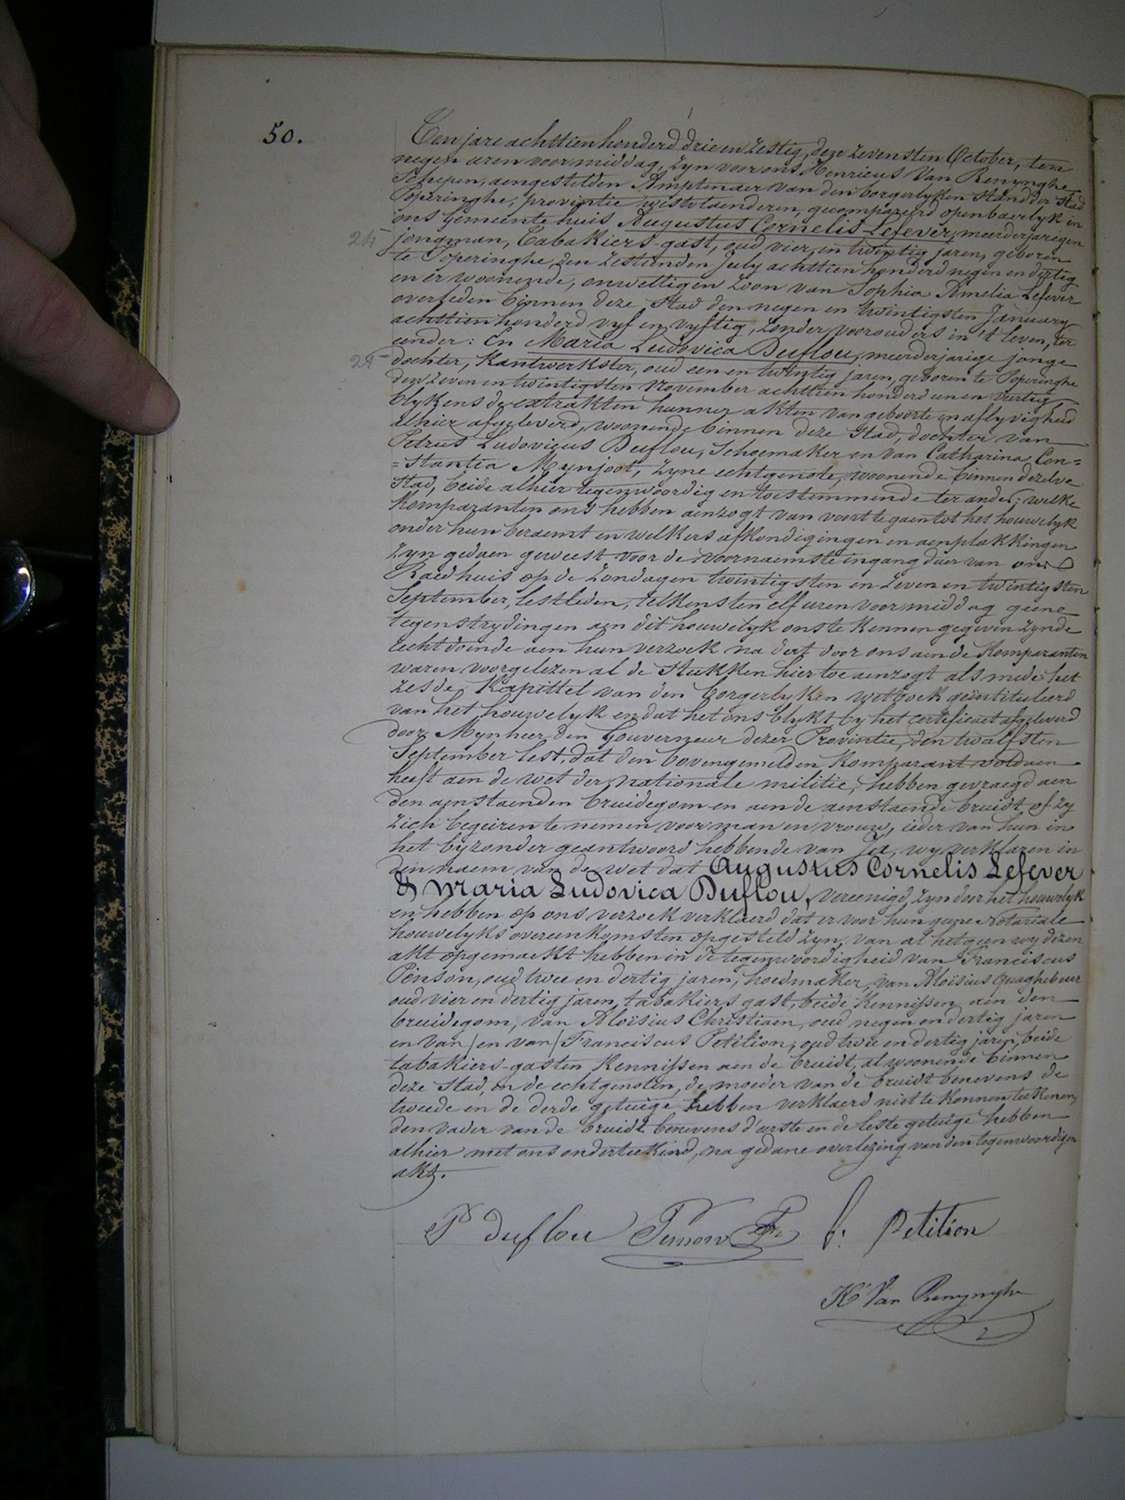 50.
Ten jare achttien honderd drie en zestig, deze zevensten October, ten
negen uren voor middag, zyn voor ons Henricus Van Renynghe
Schepen, aengestelden Amptenaer van den borgerlyken Stand der Stad
Poperinghe, provintie westvlaenderen, gecompareerd openbaerlyk in
ons Gemeente huis Augustus Cornelis Lefever, meerderjarigen
24
jongman, Tabakkiers gast, oud vier en twintig jaren, geboren
te Poperinghe, den zestienden July achttien honderd negen en dertig
en er woonende, onwettigen zoon van Sophia Amelia Lefever
overleden binnen deze Stad den negen en twintigsten January
achttien honderd vyf en vyftig, zonder voorouders in 't leven, ter
eender: En Maria Ludovica Duflou, meerderjarige jonge
dochter, Kantwerkster, oud een en twintig jaren, geboren te Poperinghe
den zeven en twintigsten November achttien honderd een en veertig
blykens de extrakten hunner akten van geboorte en aflyvigheid
alhier afgeleverd, woonende binnen deze Stad, dochter van
Petrus Ludovicus Duflou, Schoemaker en van Catharina Con=
=stantia Mynjoot, zyne echtgenote, woonende binnen dezelve
Stad, beide alhier tegenwoordig en toestemmende ter ander; welke
Komparanten ons hebben aenzogt van voort te gaen tot het houwelyk
onder hun beraemt en welkers afkondigingen en aenplakkingen
zyn gedaen geweest voor de voornaemste ingang duer van ons
Raedhuis op de zondagen twintigsten en zeven en twintigsten
September, lestleden, telkens ten elf uren voor middag geene
tegenstrydingen aen dit houwelyk ons te kennen gegeven zynde
recht doende aen hun verzoek na dat door ons aen de Komparanten
waren voorgelezen al de Stukken hier toe aenzogt als mede het
zesde Kapittel van den borgerlyken Wetboek geintituleerd
van het houwelyk en dat het ons blykt by het certificaet afgeleverd
door Mynheer den Gouverneur dezer Provintie, den twalfsten
September lest, dat den bovengemelden Komparant voldaen
heeft aen de wet der nationale militie, hebben gevraegd aen
den aenstaenden bruidegom en aen de aenstaende bruidt of zy
zich begeiren te nemen voor man en vrouw, ieder van hun in
het byzonder geantwoord hebbende van Ja, wy verklaren in
den naem van de wet dat Augustus Cornelis Lefever
& Maria Ludovica Duflou, vereenigd zyn door het houwelyk
en hebben op ons verzoek verklaerd dat er voor hun geene notariale
houwelyks overeenkomsten opgesteld zyn, van al het geen wy dezen
akt opgemaekt hebben in de tegenwoordigheid van Franciscus
Penson, oud twee en dertig jaren, hoedmaker, van Aloïsius Quaghebeur
oud vier en dertig jaren, tabakkiers gast, beide Kennissen aen den
bruidegom, van Aloïsius Christiaen, oud negen en dertig jaren
en van / en van / Franciscus Petition, oud twee en dertig jaren, beide
tabakkiers-gasten Kennissen aen de bruidt, al woonende binnen
deze Stad, en de echtgenoten, de moeder van de bruidt benevens de
tweede en de derde getuige hebben verklaerd niet te konnen teekenen,
den vader van de bruidt benevens d'eerste en de leste getuige hebben
alhier met ons onderteekend, na gedane overlezing van den tegenwoordigen
akt.
P Duflou Penson Fr F. Petition
H Van Renynghe